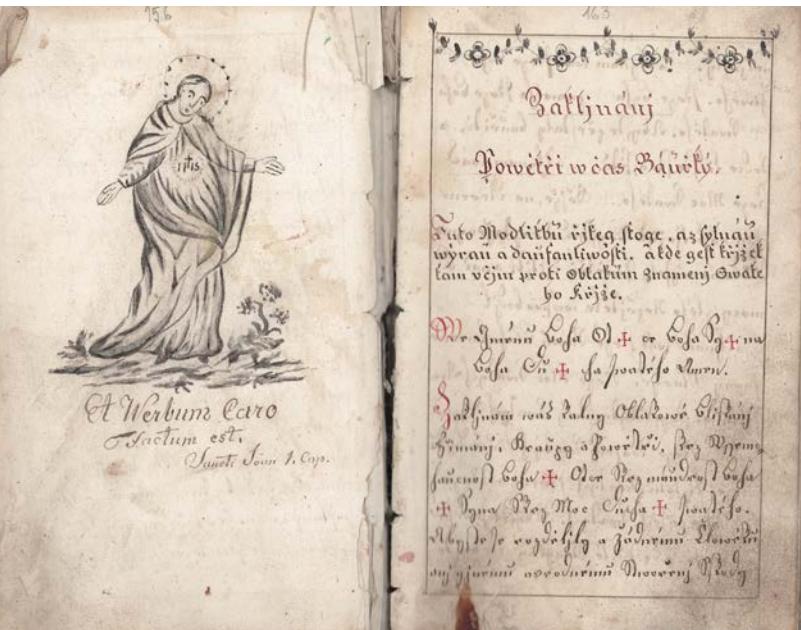 156
IHS
Et Werbum Caro
Factum est.
Sancti Joan 1. Cap.
163
Zakljnánj
Powětřj w čas Bauřky.
Tuto Modlitbu řjkeg stoge, a z sylnau
wýrau a daufanliwosti, a kde gest křjžek
tam včjn proti Oblakům Znamenj Swaté
ho Křjže.
We Gménu Boha Ot ✠ ce Boha Sy ✠ na
Boha Du ✠ cha swatého Amen.
Zakljnám wás Oblakowé Blisskánj
Hřmánj, Kraupy a Powětřj, skrz Wssemo-
haucnost Boha ✠ Otce Skrz maudrost Boha
✠ Syna Skrz Moc Ducha ✠ swatého.
Abysste se rozdělily a žádnému Člowěku
anj ginému Stwořenj Sskody